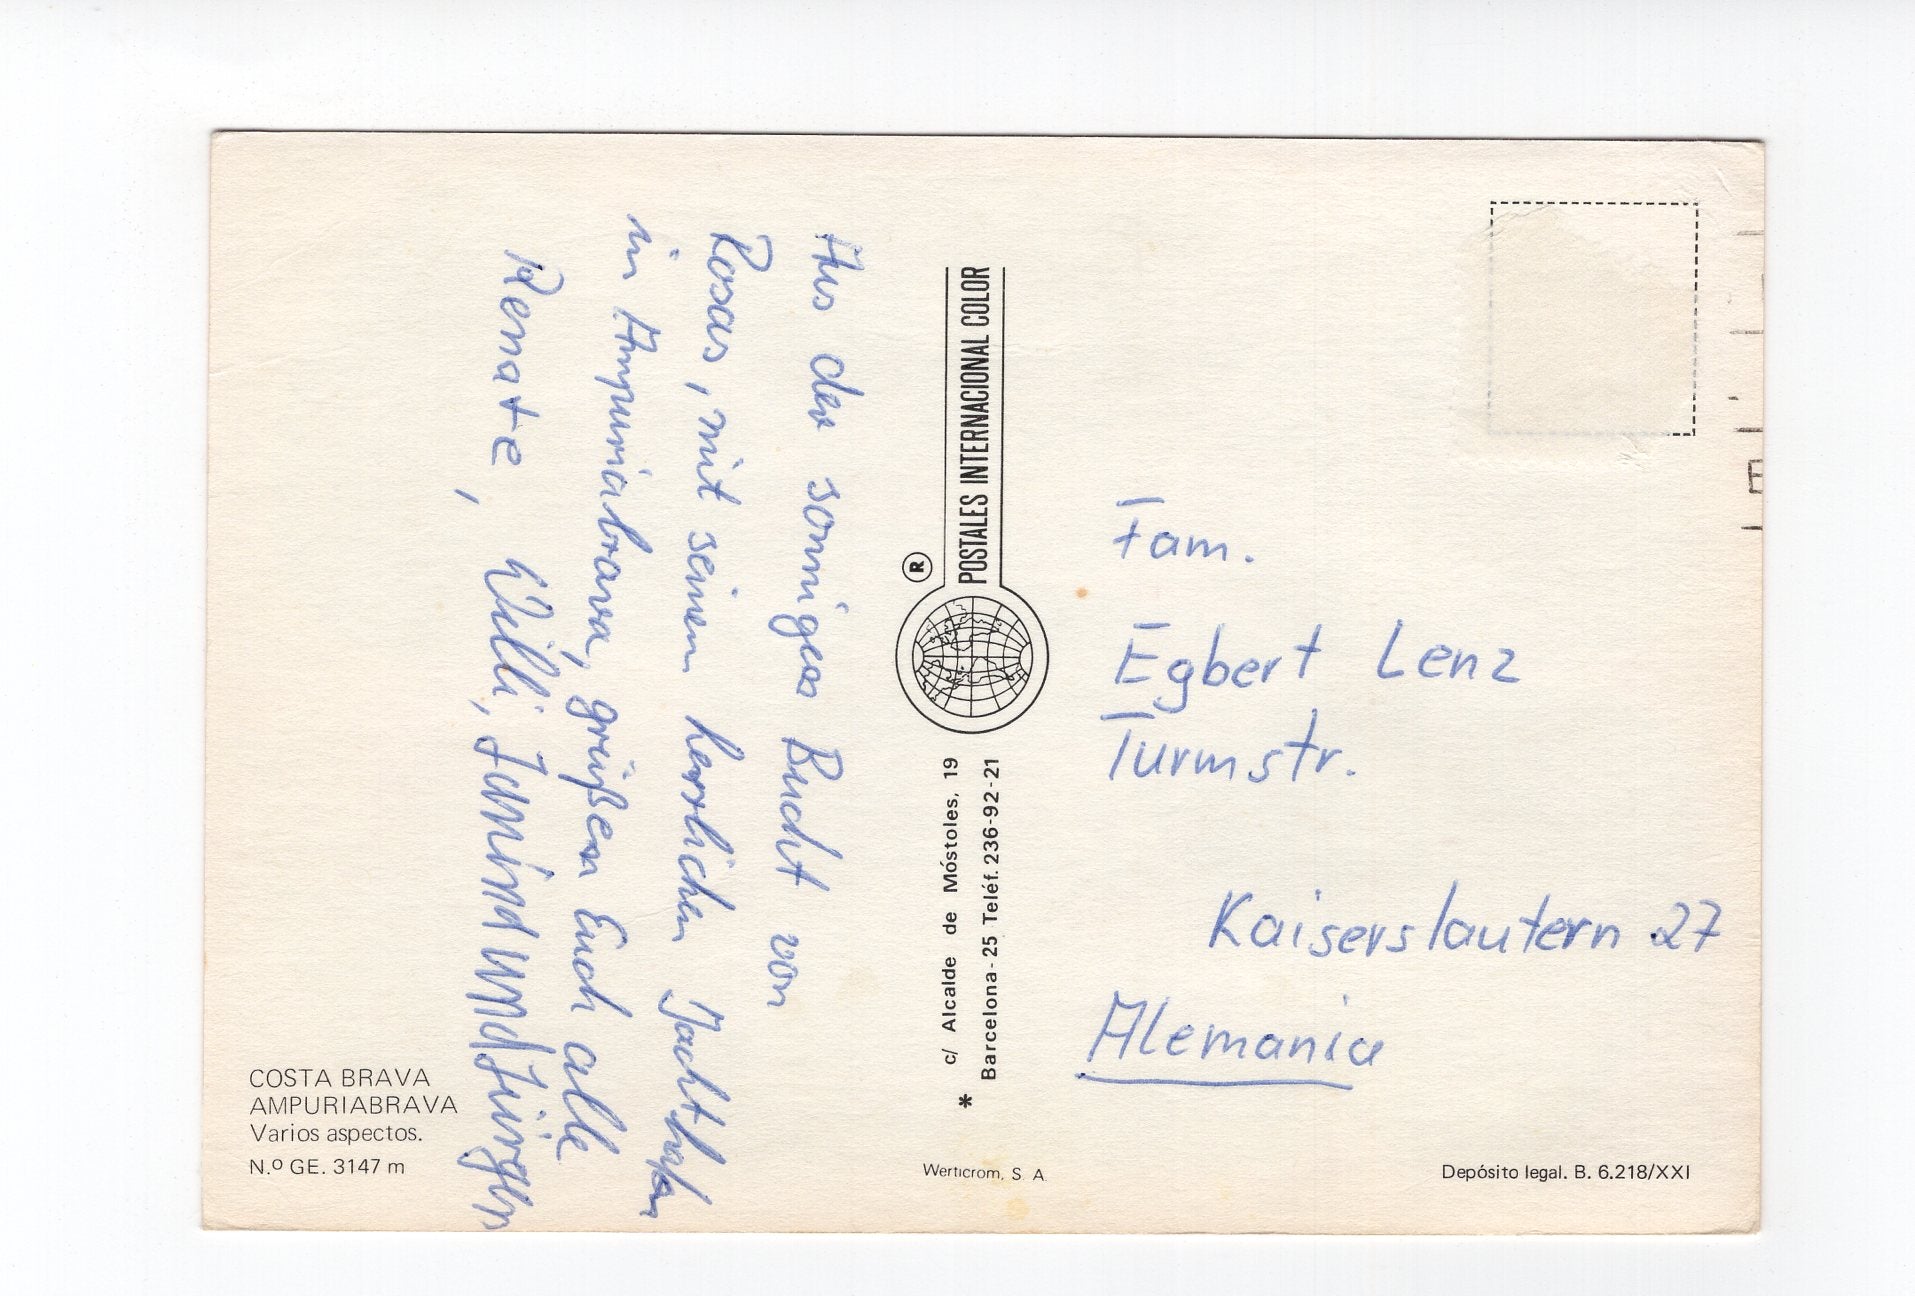 Aus der sonnigen Bucht von
Rosas, mit seinem herrlichen Jachthafen
in Ampuriabrava, grüßen Euch alle
Renate, Willi, Jannina und Jürgen
COSTA BRAVA
AMPURIABRAVA
Varios aspectos.
N.º GE. 3147 m
POSTALES INTERNACIONAL COLOR
®
c/ Alcalde de Móstoles, 19
* Barcelona-25 Teléf. 236-92-21
Werticrom, S. A.
Fam.
Egbert Lenz
Turmstr.
Kaiserslautern 27
Alemania
Depósito legal. B. 6.218/XXI